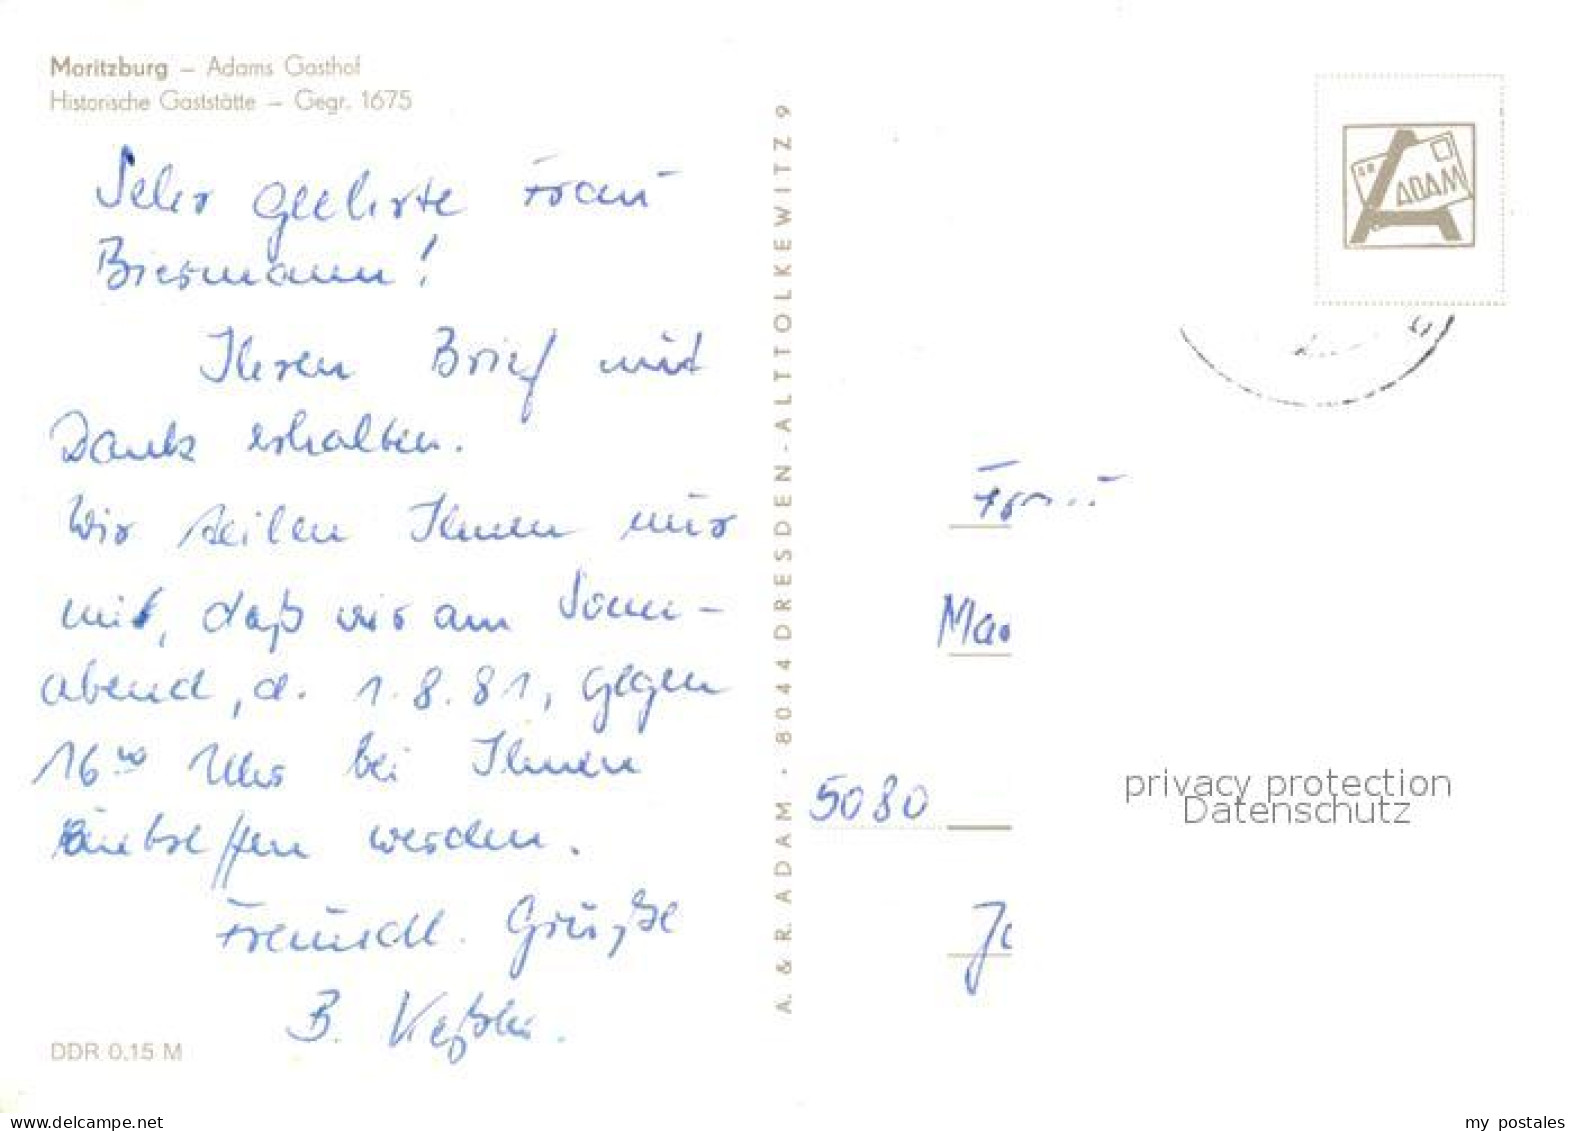 Moritzburg – Adams Gasthof
Historische Gaststätte – Gegr. 1675
Sehr geehrte Frau
Biermann!
Ihren Brief mit
Dank erhalten.
Wir teilen Ihnen nur
mit, daß wir am Sonn-
abend, d. 1.8.81, gegen
16⁰⁰ Uhr bei Ihnen
eintreffen werden.
Freundl. Grüße
B. Keßler.
DDR 0,15 M
A. & R. ADAM · 8044 DRESDEN-ALTTOLKEWITZ 9
ADAM
Frau
5080
privacy protection
Datenschutz
www.delcampe.net
my_postales